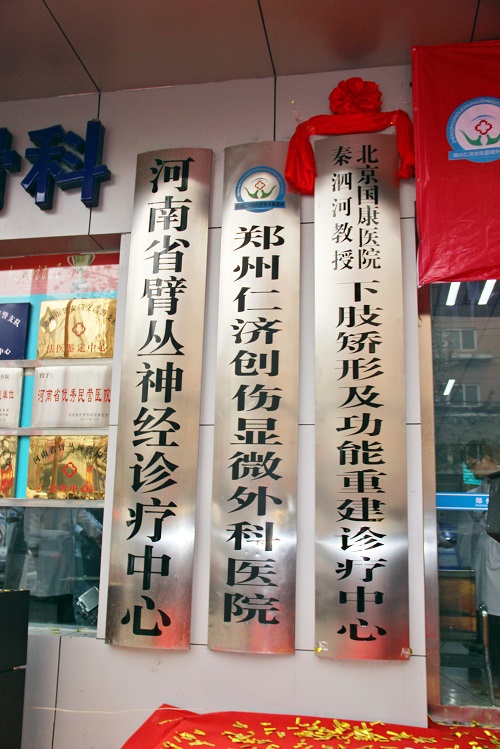 骨科
河南省臂丛神经诊疗中心
郑州仁济创伤显微外科医院
北京国康医院
秦泗河教授
下肢矫形及功能重建诊疗中心
法医鉴定中心
河南省优秀民营医院